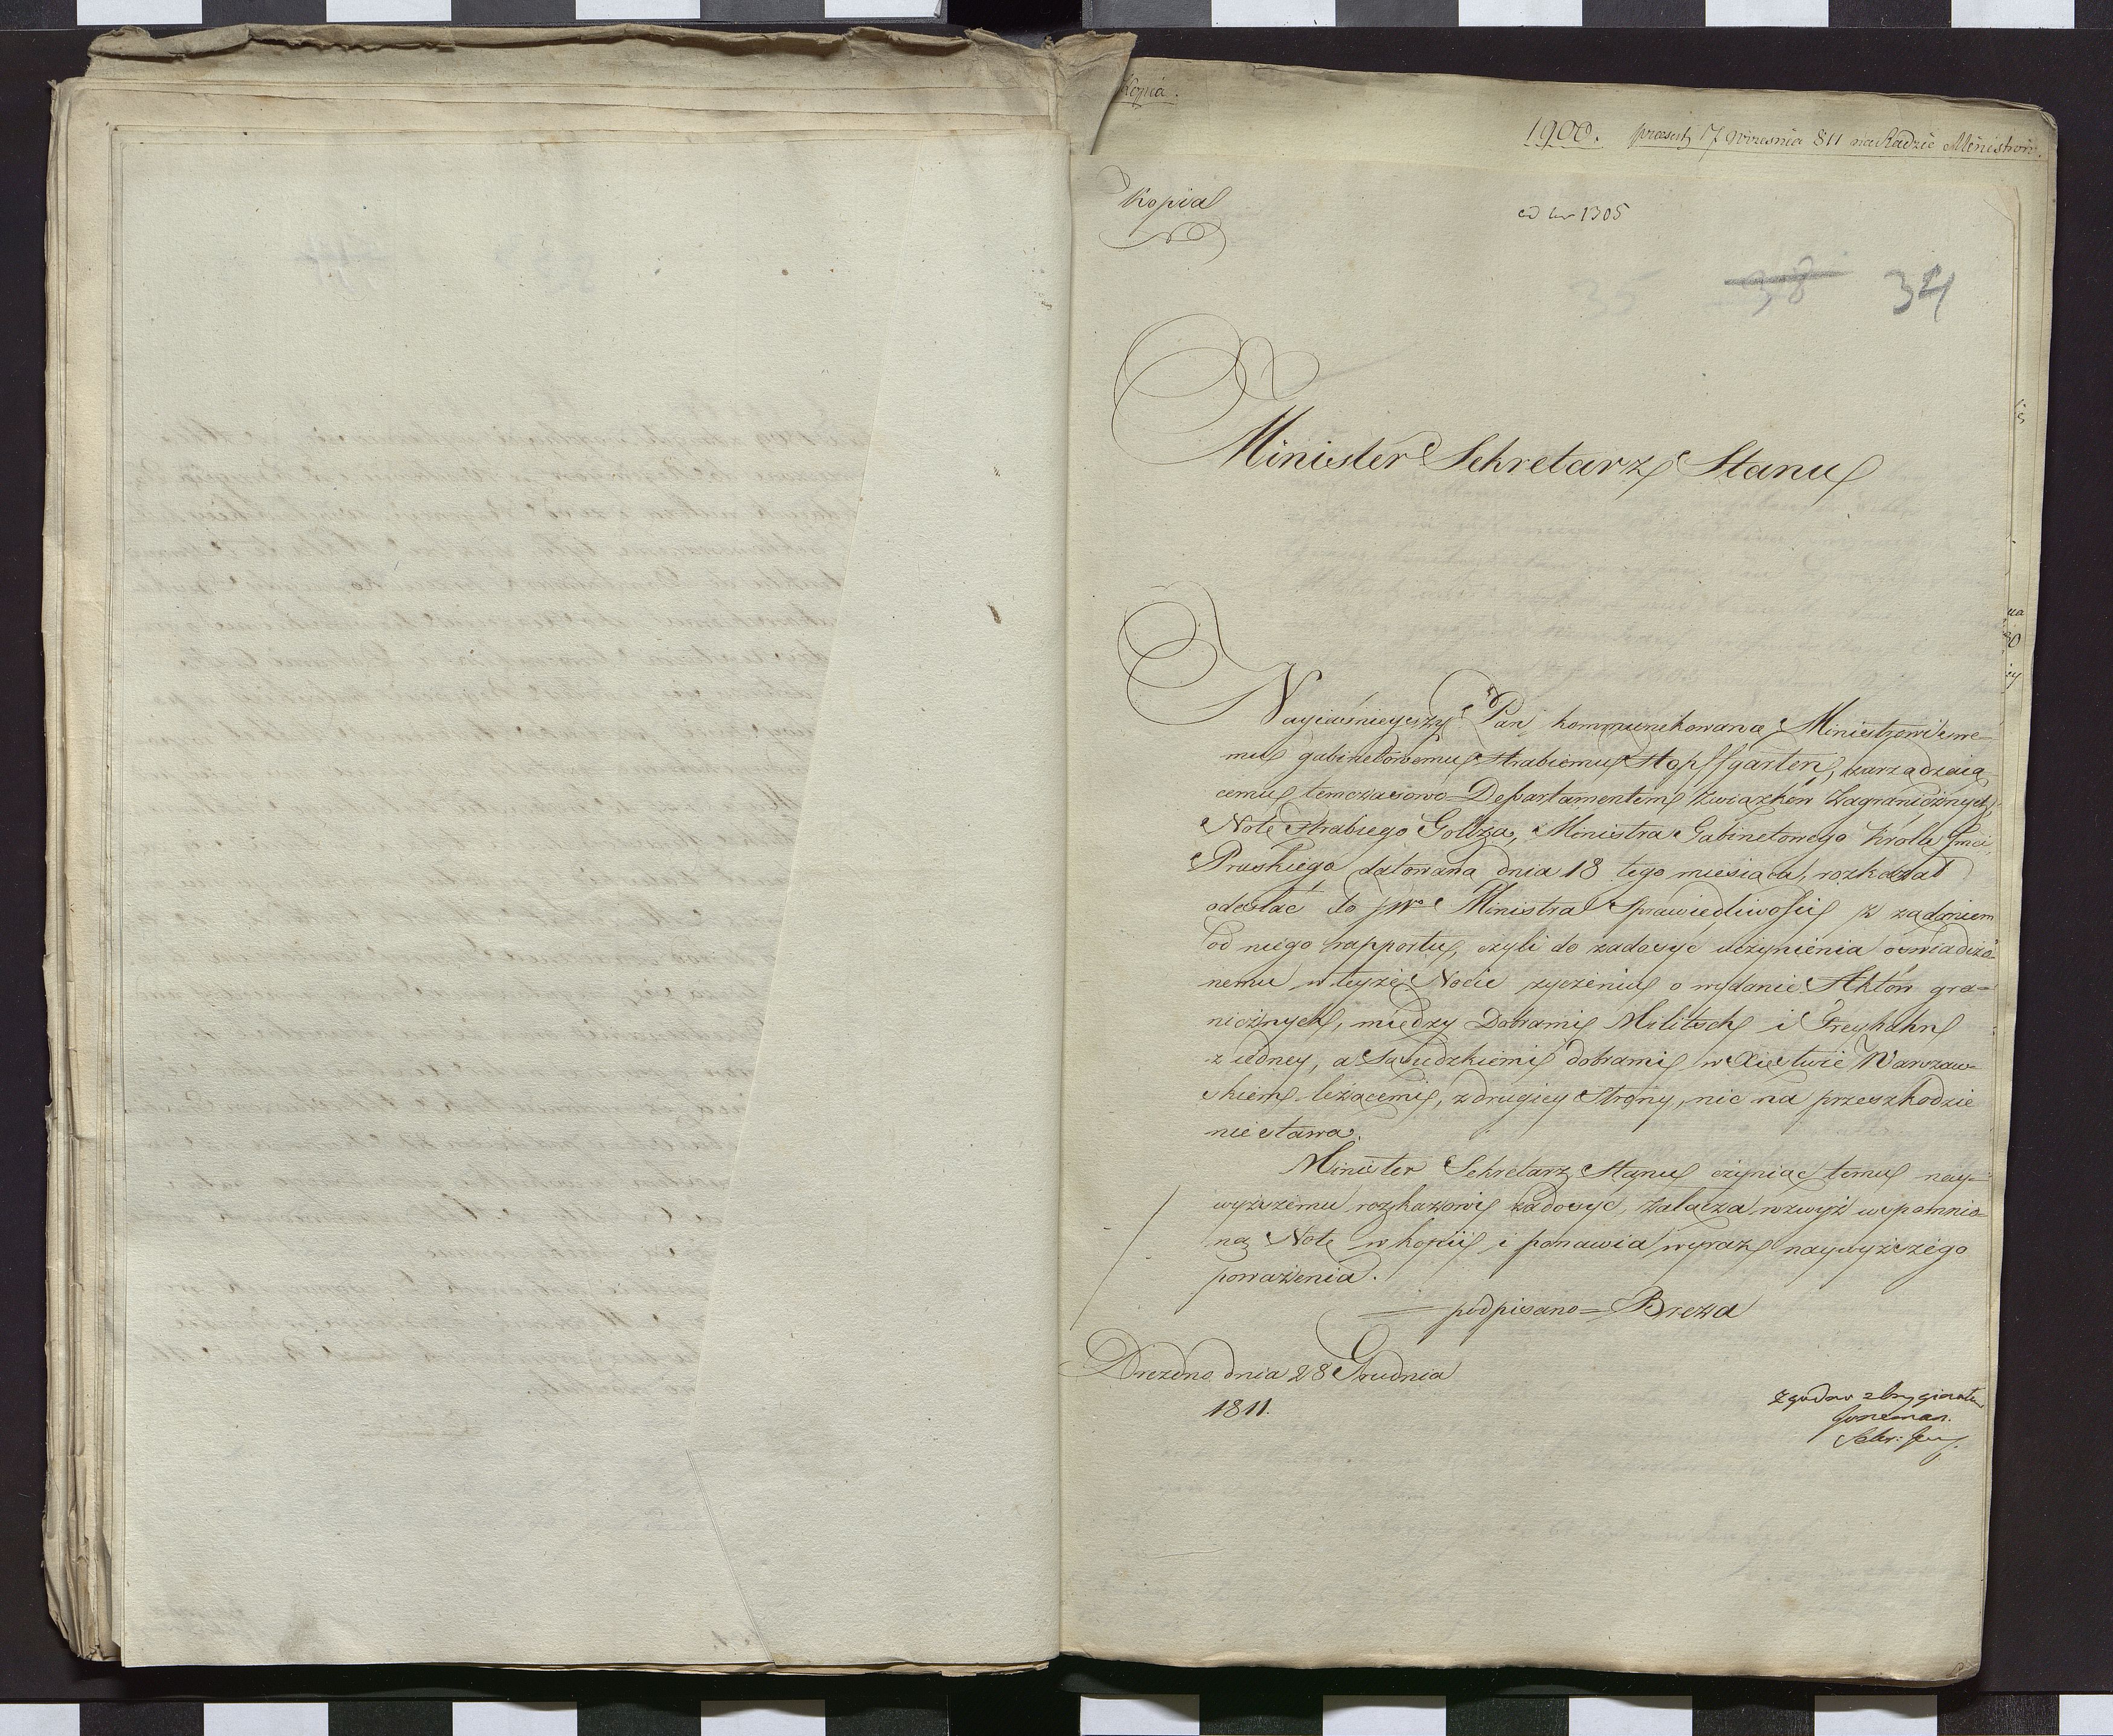 Kopia.
1900. praesent. 17 Września 811 na Radzie Ministrów.
Kopia
ad N 1305
35 38 34
Minister Sekretarz Stanu
Nayiaśnieyszy Pan kommunikowaną Ministrowi swe=
mu gabinetowemu Hrabiemu Hopffgarten, zarządzaią
cemu temczasowo Departamentem Związków Zagranicznych,
Notę Hrabiego Goltza, Ministra Gabinetowego Króla Jmci
Pruskiego datowaną dnia 18 tego miesiąca, rozkazał
odesłać do JWo Ministra Sprawiedliwości z żądaniem
od niego rapportu, czyli do zadosyć uczynienia oświadczo=
nemu w teyże Nocie życzeniu o wydanie Aktów gra=
nicznych, między Dobrami Militsch i Freyhahn
z iedney, a Sąsiedzkiemi dobrami w Xięstwie Warszaw=
skiem leżącemi, z drugiey Strony, nic na przeszkodzie
nie stawa.
Minister Sekretarz Stanu czyniąc temu nay=
wyższemu rozkazowi zadosyć, załącza rozwyż wspomnio=
ną Notę w kopii i ponawia wyrazy naywyższego
poważenia.
podpisano = Breza
Drezdno dnia 28 Grudnia
1811.
Zgodno z Orygınałem